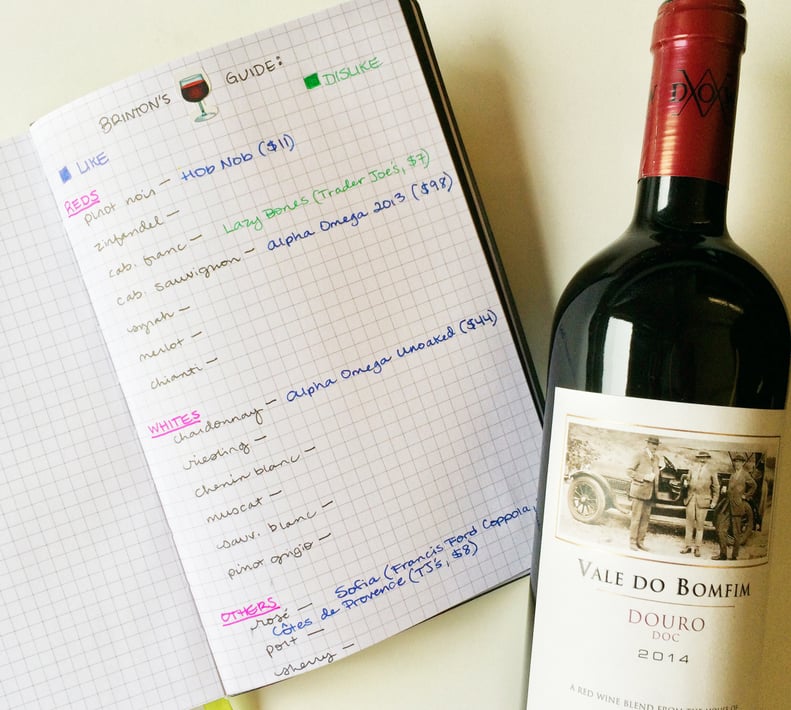 BRINTON'S GUIDE:
LIKE
DISLIKE
REDS
pinot noir — Hob Nob ($11)
zinfandel —
cab. franc — Lazy Bones (Trader Joe's, $7)
cab. sauvignon — Alpha Omega 2013 ($98)
syrah —
merlot —
chianti —
WHITES
chardonnay — Alpha Omega Unoaked ($44)
riesling —
chenin blanc —
muscat —
sauv. blanc —
pinot grigio —
OTHERS
rosé — Sofia (Francis Ford Coppola,
Côtes de Provence (TJ's, $8)
port —
sherry —
VALE DO BOMFIM
DOURO
DOC
2014
A RED WINE BLEND FROM THE HOUSE OF